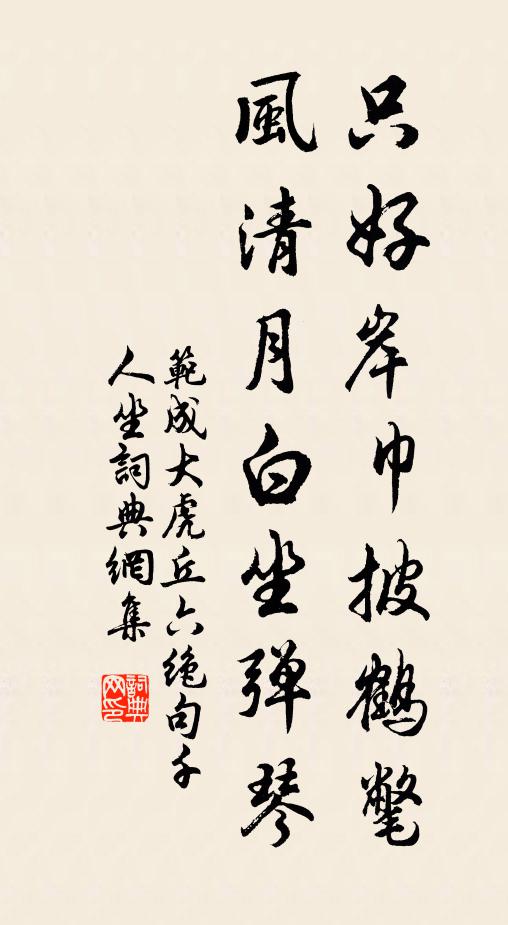 只好岸巾披鶴氅
風清月白坐弹琴
範成大虎丘六絶句千
人坐詞典網集
詞典
网印